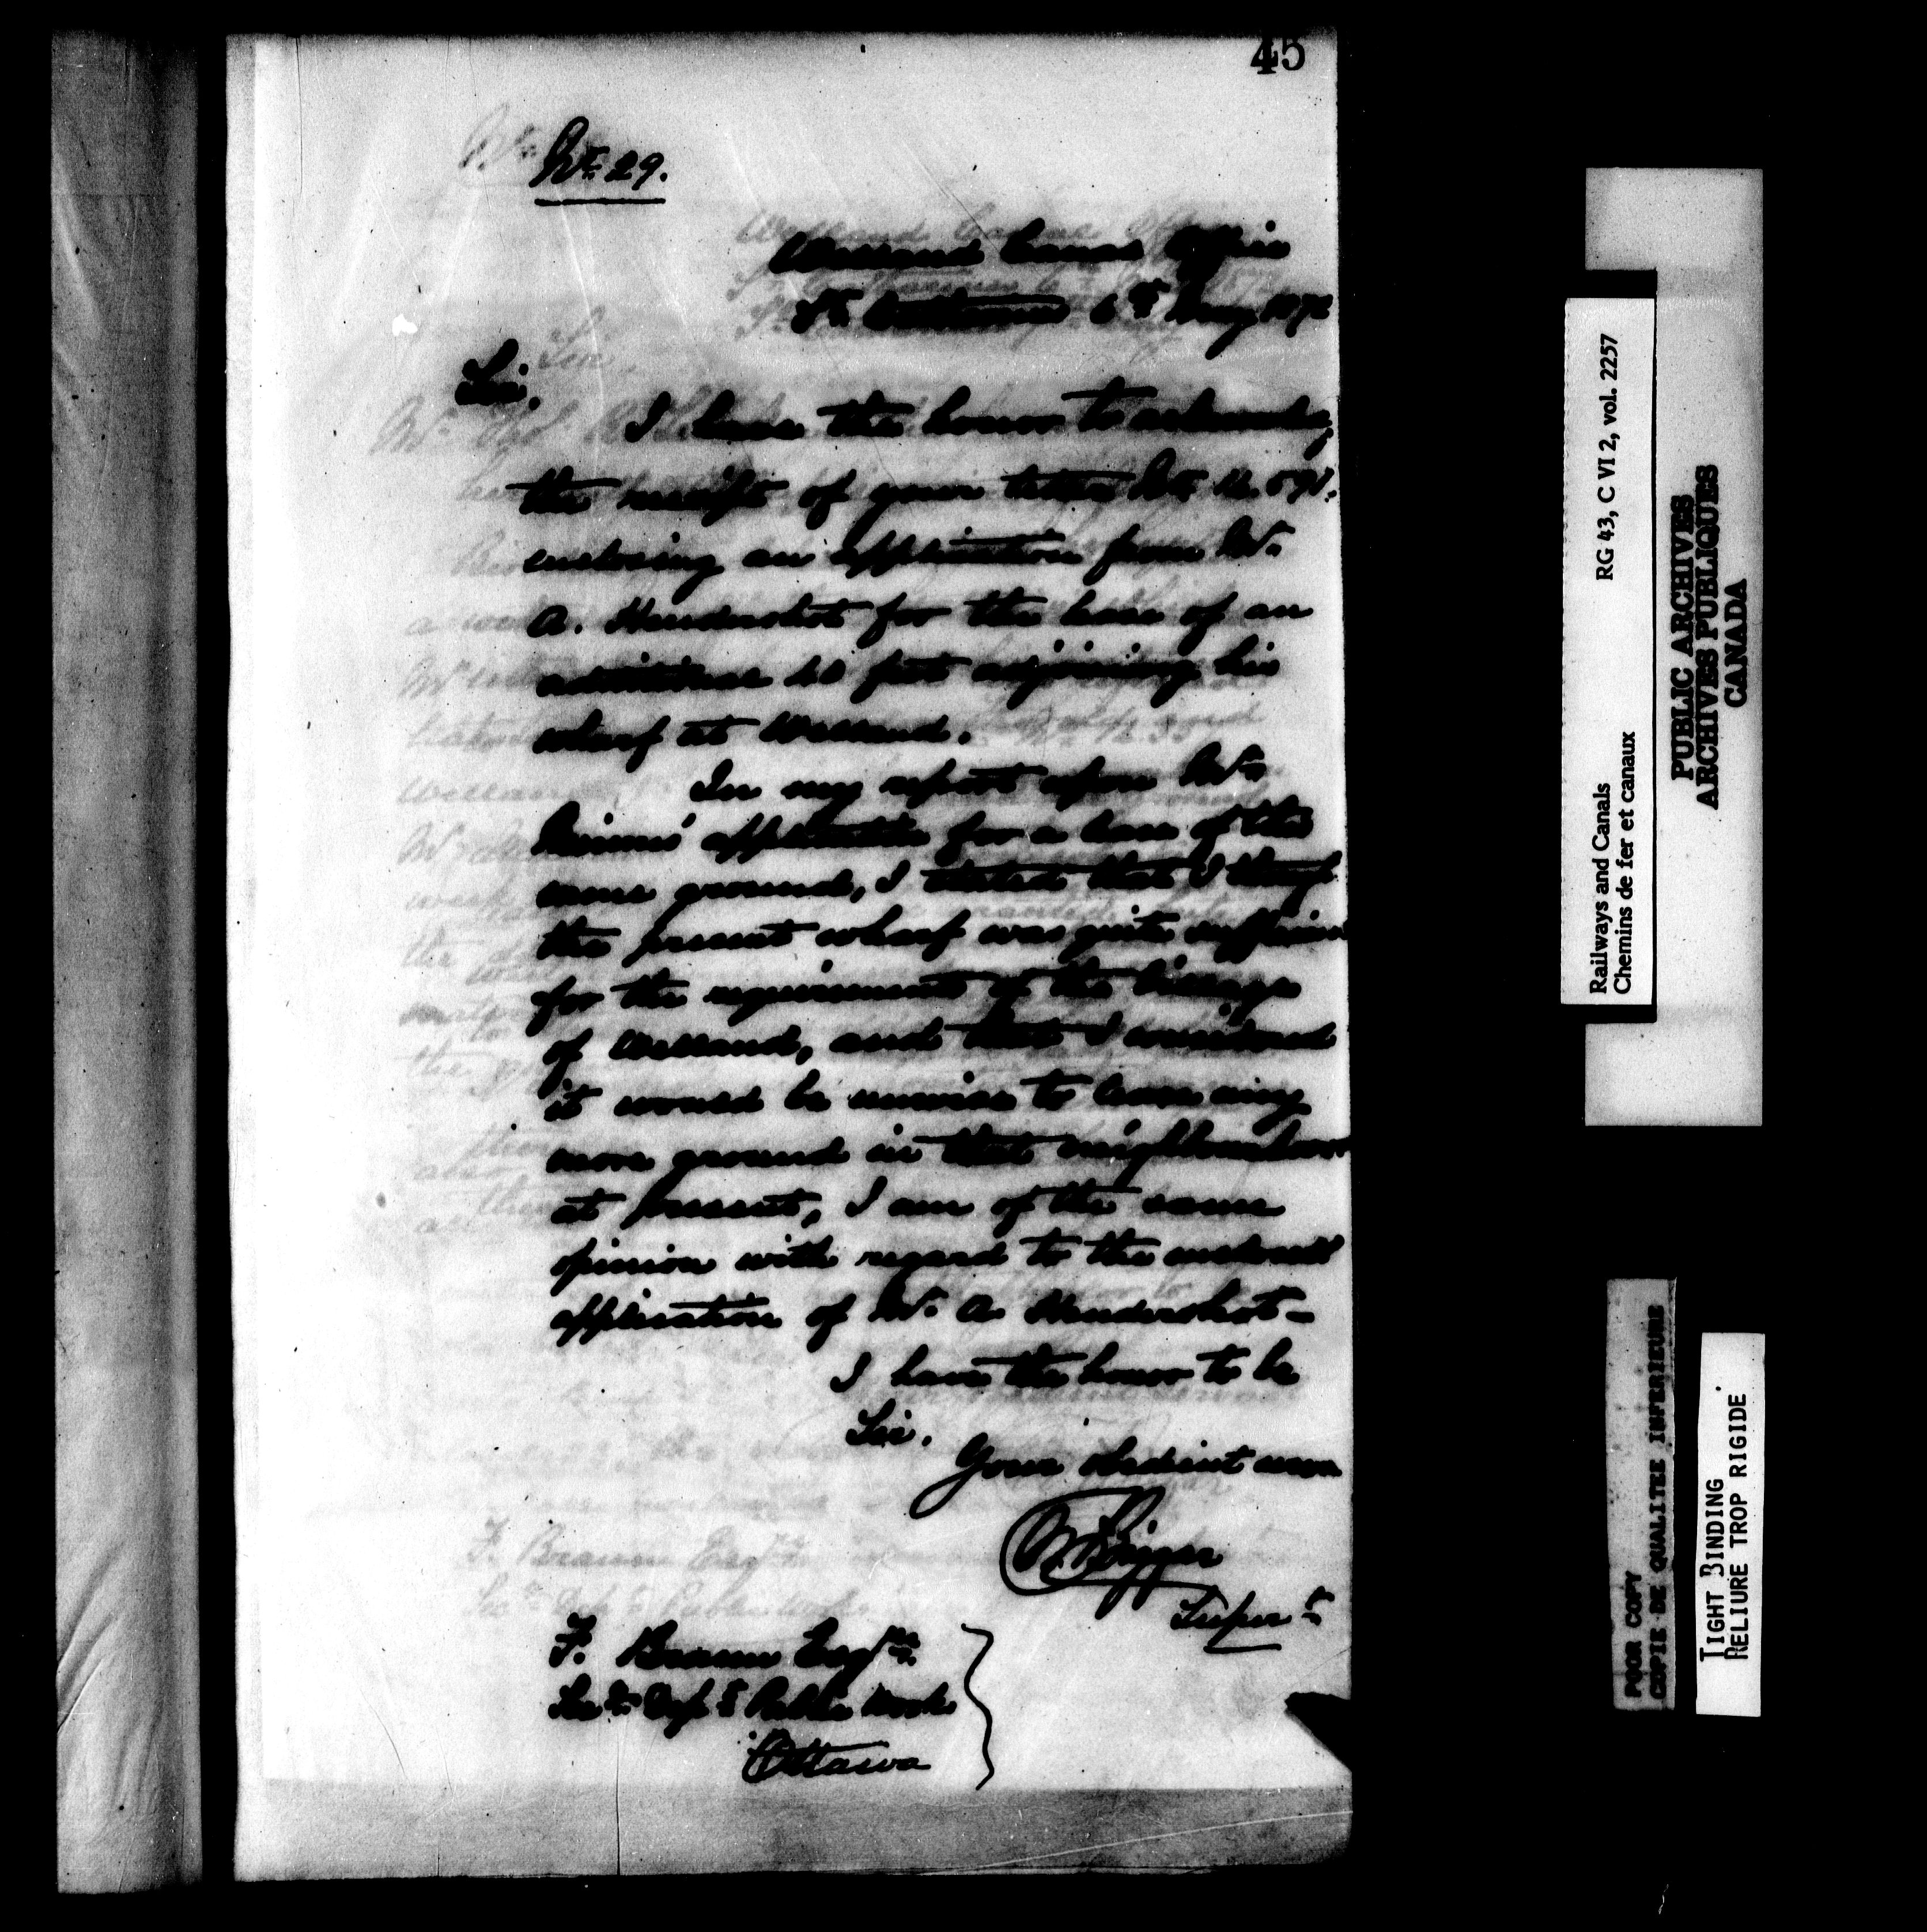 45
No. 29.
Welland Canal Office
St. Catharines 6th May 1872
Sir,
I have the honor to acknowledge
the receipt of your letter No.
enclosing an application from Mr.
A. Hendershot for the lease of an
additional 60 feet adjoining his
wharf at Welland.
In my report upon Mr.
application for a lease of the
same ground, I stated that I though
the present wharf was quite sufficien
for the requirements of the Village
of Welland, and that I considered
it would be unwise to lease any
more ground in that neighbourhoo
at present, I am of the same
opinion with regard to the enclosed
application of Mr. A Hendershot-
I have the honor to be
Sir.
Your obedient serva
Supert
F. Braun Esqre.
Secty. Dept. Public Works
Ottawa
Railways and Canals RG 43, C VI 2, vol. 2257
Chemins de fer et canaux
PUBLIC ARCHIVES
ARCHIVES PUBLIQUES
CANADA
POOR COPY
COPIE DE QUALITEE INFERIEURE
TIGHT BINDING
RELIURE TROP RIGIDE